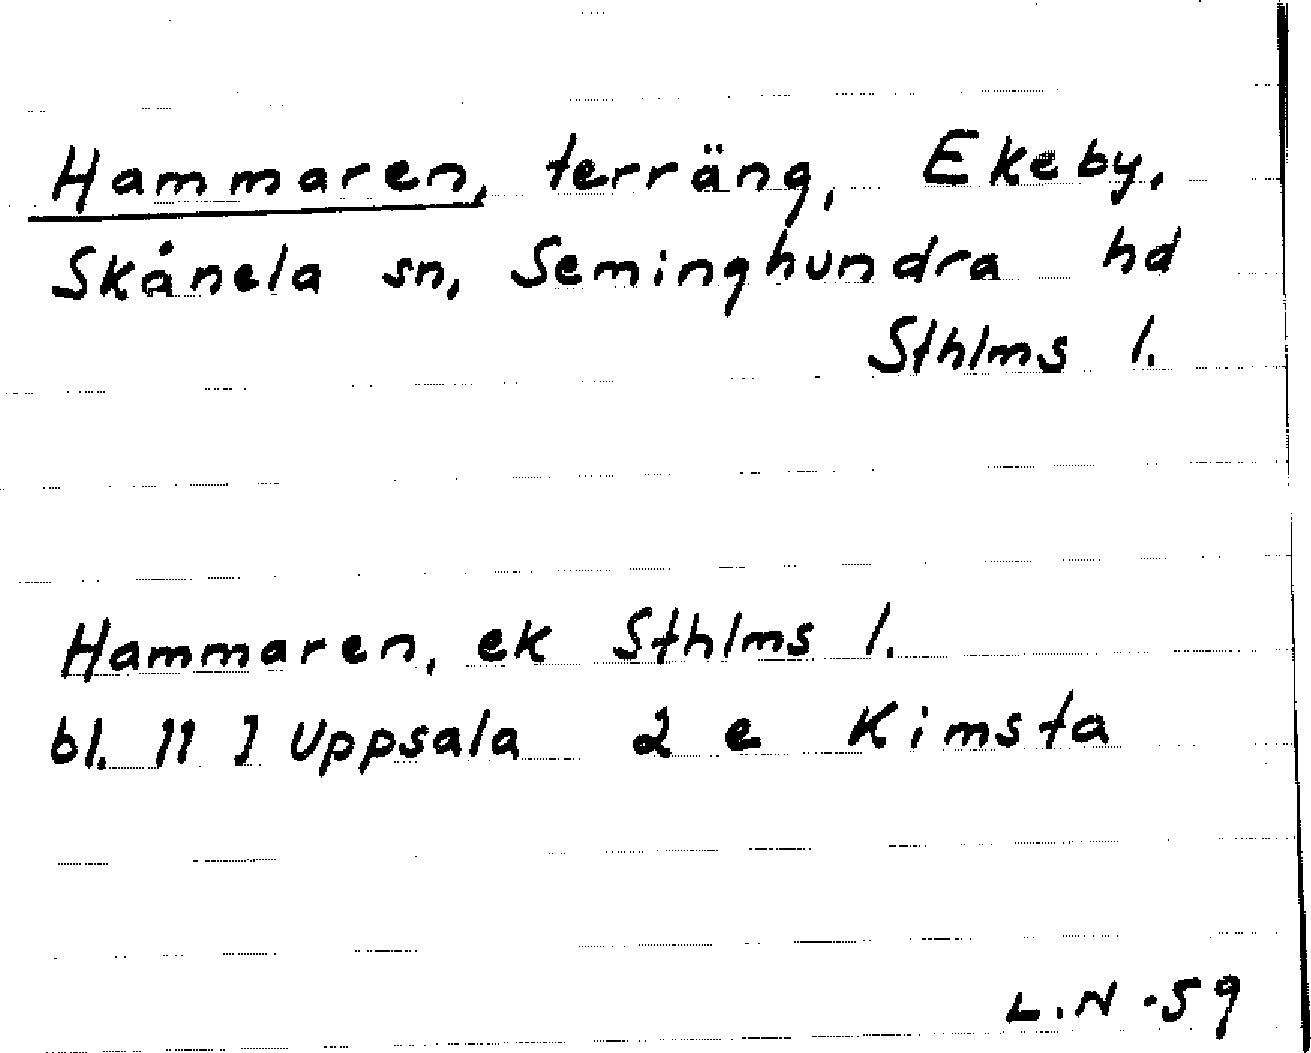 Hammaren, terräng, Ekeby,
Skånela sn, Seminghundra hd
Sthlms l.
Hammaren, ek Sthlms l.
bl. 11 I Uppsala 2 e Kimsta
L.N -59